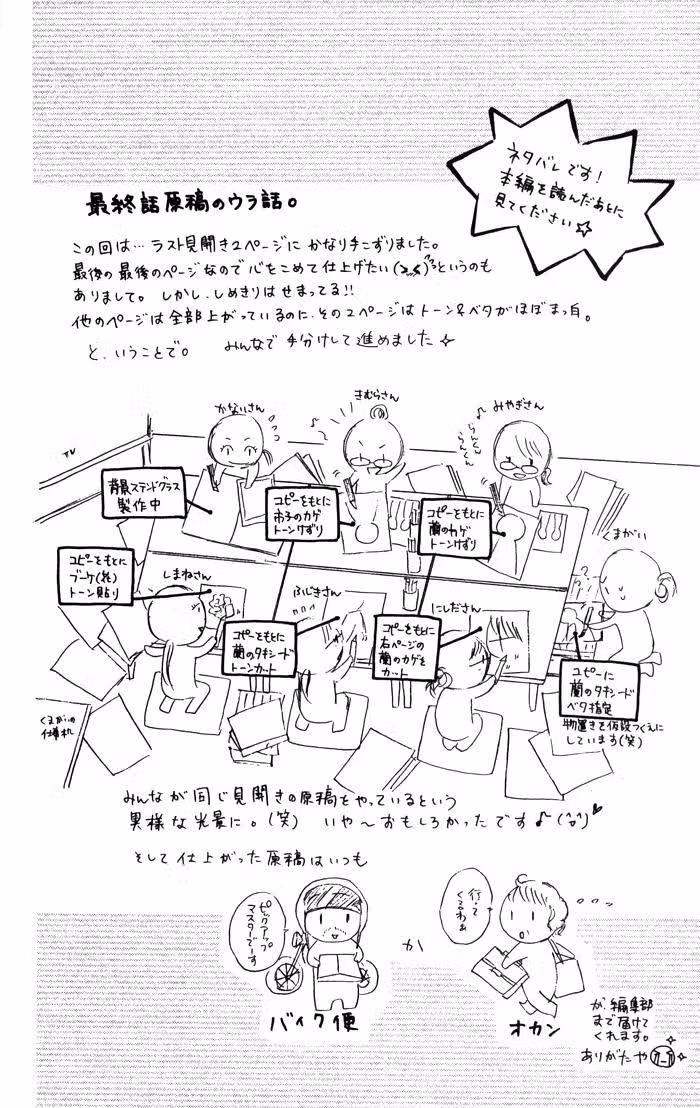 ネタバレです!
本編を読んだあとに
見てください☆
最終話原稿のウラ話。
この回は…ラスト見開き2ページに かなり手こずりました。
最後の最後のページなので心をこめて仕上げたい というのも
ありまして。しかし、しめきりはせまってる!!
他のページは全部上がっているのに、その2ページはトーン&ベタがほぼまっ白。
と、いうことで。 みんなで手分けして進めました☆
かないさん
きむらさん
みやぎさん
らんらん
らんらん
TV
背景ステンドグラス
製作中
コピーをもとに
市子のカゲ
トーンけずり
コピーをもとに
蘭のカゲ
トーンけずり
くまがい
コピーをもとに
ブーケ(花)
トーン貼り
しまねさん
コピーをもとに
蘭のタキシード
トーンカット
ふじきさん
カリカリ
コピーをもとに
右ページの
蘭のカゲを
カット
にしださん
コピーに
蘭のタキシード
ベタ指定
物置きを仮設つくえに
しています(笑)
くまがいの
仕事机
みんなが同じ見開きの原稿をやっているという
異様な光景に。(笑) いや〜おもしろかったです♪
そして仕上がった原稿はいつも
ピックアップ
マスターです
バイク便
か
行って
くるわぁ
オカン
が、編集部
まで届けて
くれます。
ありがたや